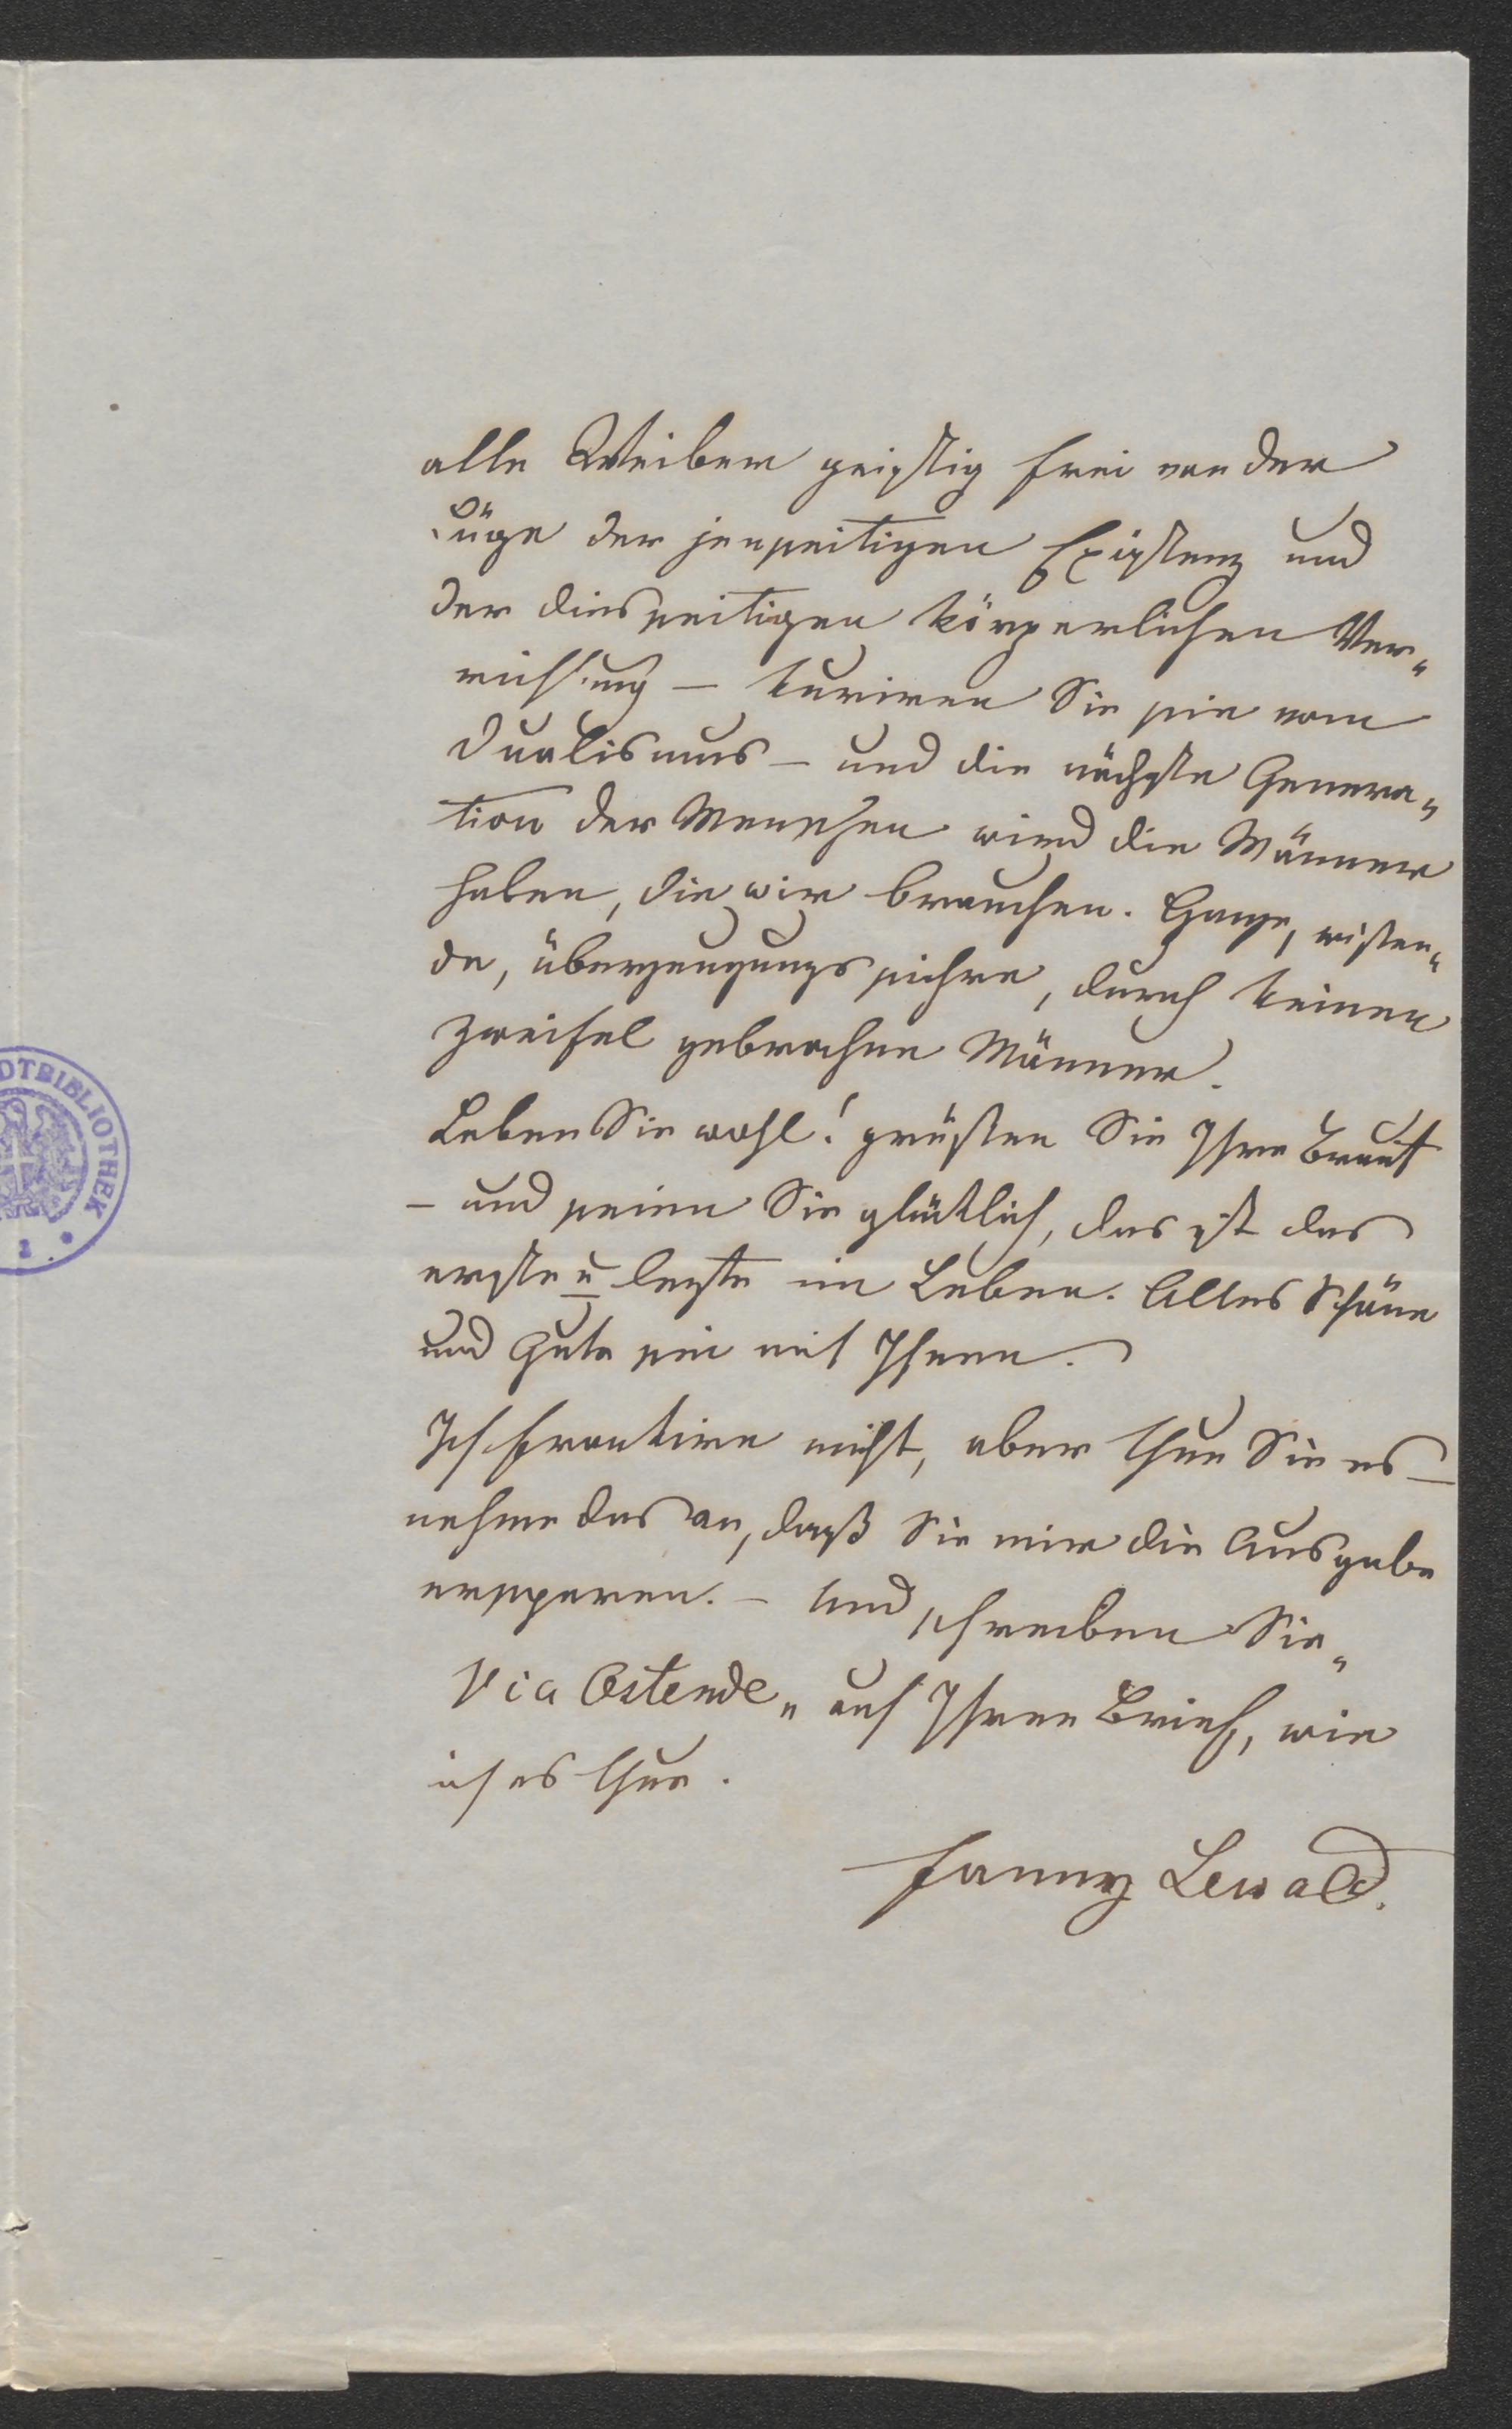 alle Weiber geistig frei von der
Lüge der jenseitigen Existenz und
der diesseitigen körperlichen Ver„
nichtung – kuriren Sie sie vom
Dualismus – und die nächste Genera„
tion der Menschen wird die Männer
haben, die wir brauchen. Ganze, wissen„
de, überzeugungssichre, durch keinen
Zweifel gebrochne Männer.
Leben Sie wohl! grüßen Sie Ihre Braut
– und seien Sie glücklich, das ist das
erste u letzte im Leben. Alles Schöne
und Gute sei mit Ihnen.
Ich frankire nicht, aber thun Sie es –
nehme das an, daß Sie mir die Ausgabe
ersparen. – Und schreiben Sie „
Via Ostende „ auf Ihren Brief, wie
ich es thue.
Fanny Lewald.
DTBIBLIOTHEK